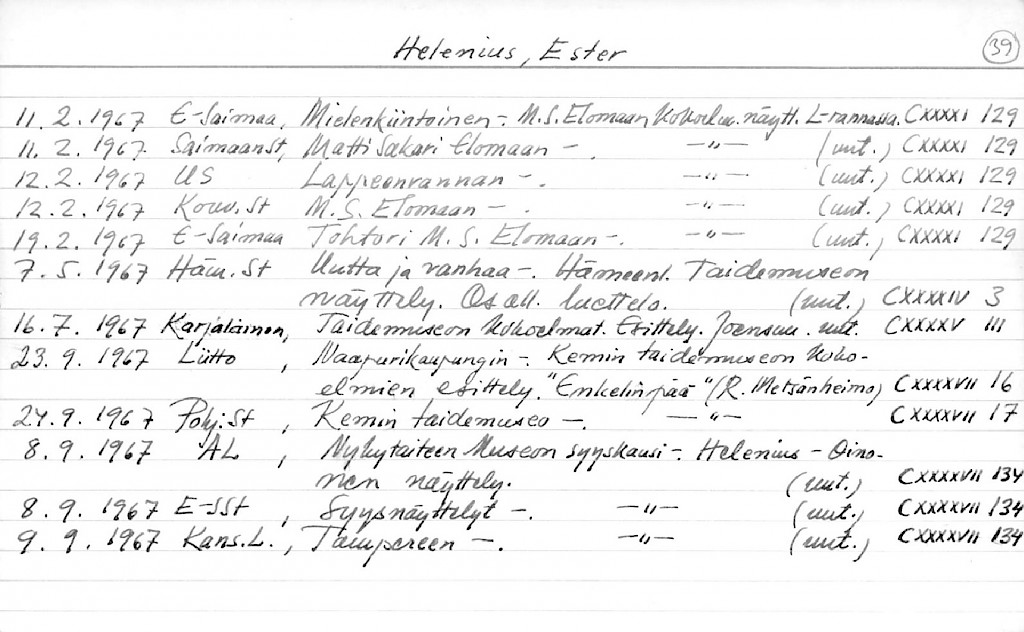 Helenius, Ester 39
11. 2. 1967 E-Saimaa, Mielenkiintoinen -. M.S. Elomaan kokoelm. näytt. L-rannassa. CXXXXI 129
11. 2. 1967 Saimaan St, Matti Sakari Elomaan -. -"- (uut.) CXXXXI 129
12. 2. 1967 US Lappeenrannan -. -"- (uut.) CXXXXI 129
12. 2. 1967 Kouv. St M. S. Elomaan -. -"- (uut.) CXXXXI 129
19. 2. 1967 E-Saimaa Tohtori M. S. Elomaan -. -"- (uut.) CXXXXI 129
7. 5. 1967 Häm. St Uutta ja vanhaa -. Hämeenl. Taidemuseon
näyttely. Osall. luettelo. (uut.) CXXXXIV 3
16. 7. 1967 Karjalainen, Taidemuseon kokoelmat. Esittely. Joensuu. uut. CXXXXV 111
23. 9. 1967 Liitto , Naapurikaupungin -. Kemin taidemuseon koko-
elmien esittely. "Enkelinpää" (R. Metsänheimo) CXXXXVII 16
24. 9. 1967 Pohj. St , Kemin taidemuseo -. -"- CXXXXVII 17
8. 9. 1967 AL , Nykytaiteen Museon syyskausi -. Helenius - Oino-
nen näyttely. (uut.) CXXXXVII 134
8. 9. 1967 E-SSt , Syysnäyttelyt -. -"- (uut.) CXXXXVII 134
9. 9. 1967 Kans. L. , Tampereen -. -"- (uut.) CXXXXVII 134